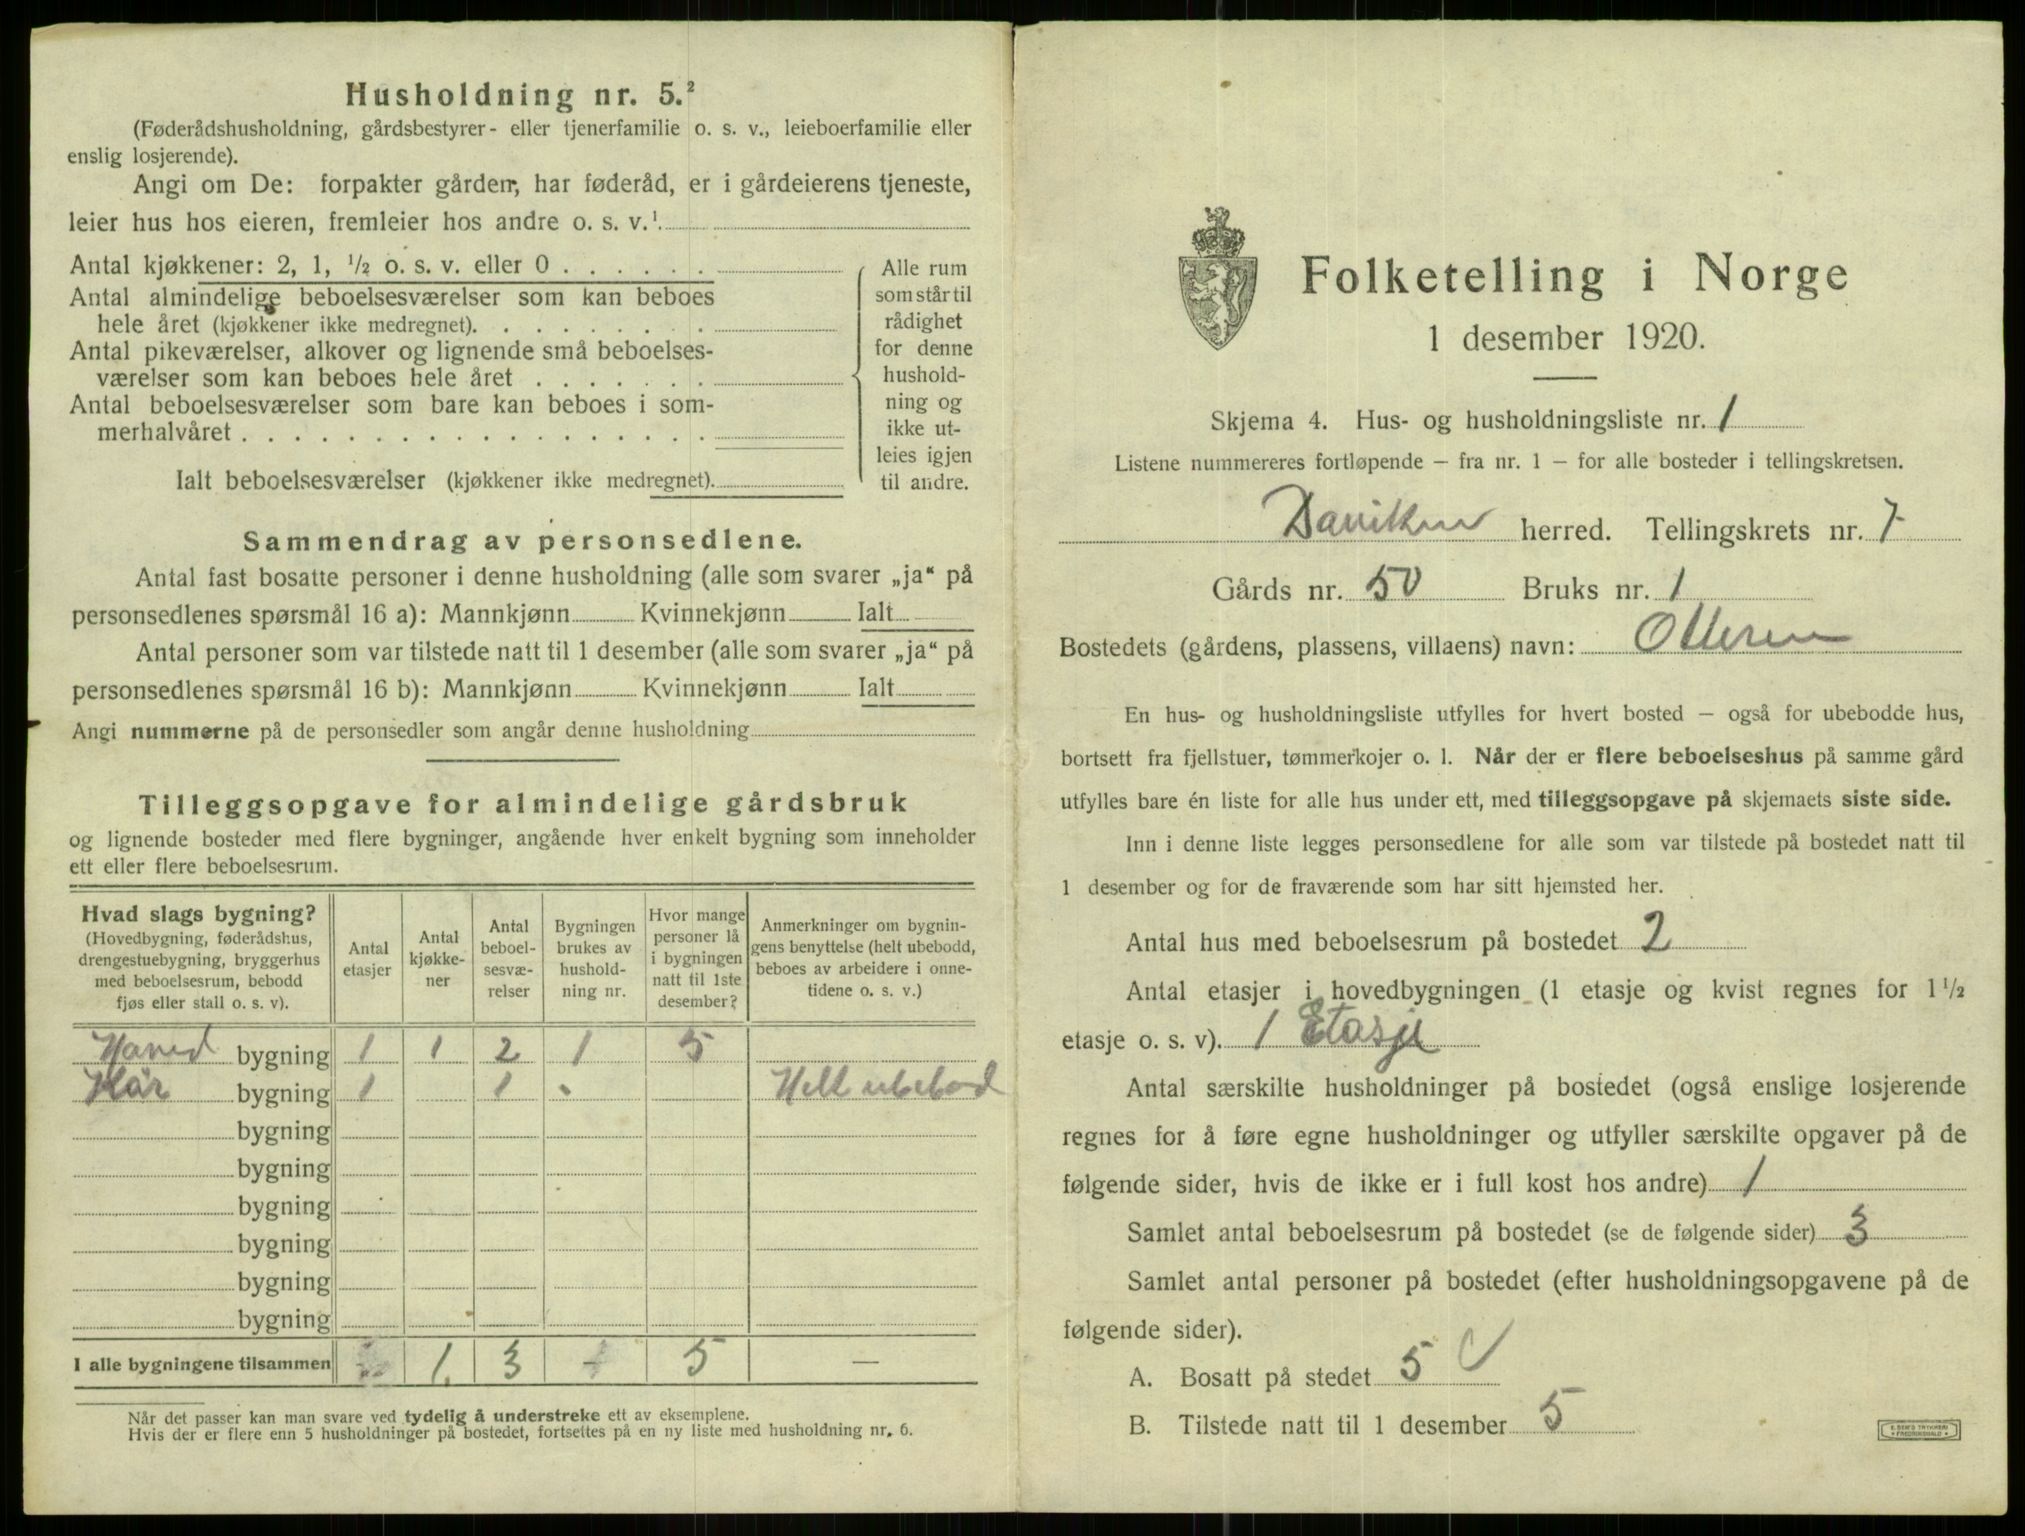 Husholdning nr. 5.²
(Føderådshusholdning, gårdsbestyrer- eller tjenerfamilie o. s. v., leieboerfamilie eller
enslig losjerende).
Angi om De: forpakter gården, har føderåd, er i gårdeierens tjeneste,
leier hus hos eieren, fremleier hos andre o. s. v.¹
Antal kjøkkener: 2, 1, ½ o. s. v. eller 0 . . . . . .
Antal almindelige beboelsesværelser som kan beboes
hele året (kjøkkener ikke medregnet). . . . . . . . .
Antal pikeværelser, alkover og lignende små beboelses-
værelser som kan beboes hele året . . . . . . .
Antal beboelsesværelser som bare kan beboes i som-
merhalvåret . . . . . . . . . . . . . . . . . .
Ialt beboelsesværelser (kjøkkener ikke medregnet).
Alle rum
som står til
rådighet
for denne
hushold-
ning og
ikke ut-
leies igjen
til andre.
Sammendrag av personsedlene.
Antal fast bosatte personer i denne husholdning (alle som svarer „ja“ på
personsedlenes spørsmål 16 a): Mannkjønn Kvinnekjønn Ialt
Antal personer som var tilstede natt til 1 desember (alle som svarer „ja“ på
personsedlenes spørsmål 16 b): Mannkjønn Kvinnekjønn Ialt
Angi nummerne på de personsedler som angår denne husholdning
Tilleggsopgave for almindelige gårdsbruk
og lignende bosteder med flere bygninger, angående hver enkelt bygning som inneholder
ett eller flere beboelsesrum.
Hvad slags bygning?
(Hovedbygning, føderådshus,
drengestuebygning, bryggerhus
med beboelsesrum, bebodd
fjøs eller stall o. s. v).
Antal
etasjer
Antal
kjøkke-
ner
Antal
beboel-
sesvæ-
relser
Bygningen
brukes av
hushold-
ning nr.
Hvor mange
personer lå
i bygningen
natt til 1ste
desember?
Anmerkninger om bygnin-
gens benyttelse (helt ubebodd,
beboes av arbeidere i onne-
tidene o. s. v.)
Hoved bygning 1 1 2 1 5
Kår bygning 1 1 Helt ubebod
bygning
bygning
bygning
bygning
bygning
bygning
I alle bygningene tilsammen 1 3 5 —
Når det passer kan man svare ved tydelig å understreke ett av eksemplene.
Hvis der er flere enn 5 husholdninger på bostedet, fortsettes på en ny liste med husholdning nr. 6.
Folketelling i Norge
1 desember 1920.
Skjema 4. Hus- og husholdningsliste nr. 1
Listene nummereres fortløpende – fra nr. 1 – for alle bosteder i tellingskretsen.
Daviken herred. Tellingskrets nr. 7
Gårds nr. 50 Bruks nr. 1
Bostedets (gårdens, plassens, villaens) navn: Otteren
En hus- og husholdningsliste utfylles for hvert bosted – også for ubebodde hus,
bortsett fra fjellstuer, tømmerkojer o. l. Når der er flere beboelseshus på samme gård
utfylles bare én liste for alle hus under ett, med tilleggsopgave på skjemaets siste side.
Inn i denne liste legges personsedlene for alle som var tilstede på bostedet natt til
1 desember og for de fraværende som har sitt hjemsted her.
Antal hus med beboelsesrum på bostedet 2
Antal etasjer i hovedbygningen (1 etasje og kvist regnes for 1½
etasje o. s. v). 1 Etasje
Antal særskilte husholdninger på bostedet (også enslige losjerende
regnes for å føre egne husholdninger og utfyller særskilte opgaver på de
følgende sider, hvis de ikke er i full kost hos andre) 1
Samlet antal beboelsesrum på bostedet (se de følgende sider) 3
Samlet antal personer på bostedet (efter husholdningsopgavene på de
følgende sider).
A. Bosatt på stedet 5
B. Tilstede natt til 1 desember 5